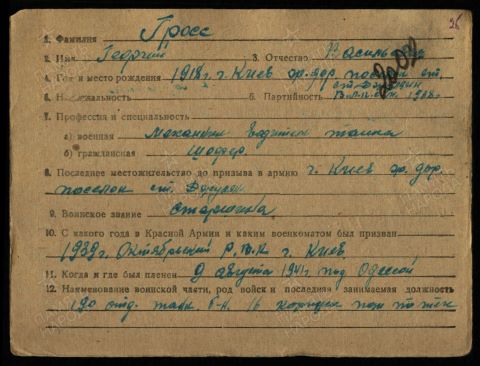 26
1. Фамилия Гросс
2. Имя Георгий 3. Отчество
4. Год и место рождения 1918 г. г. Киев
5. Национальность 6. Партийность
7. Профессия и специальность
а) военная Механик водитель танка
б) гражданская Шоффер.
8. Последнее местожительство до призыва в армию г. Киев
поселок ст.
9. Воинское звание старшина
10. С какого года в Красной Армии и каким военкоматом был призван
1939 г. Октябрьский Р.В.К г. Киев
11. Когда и где был пленен 9 августа 1941 г. под Одессой
12. Наименование воинской части, род войск и последняя занимаемая должность
190 отд. танк. б-н. 16